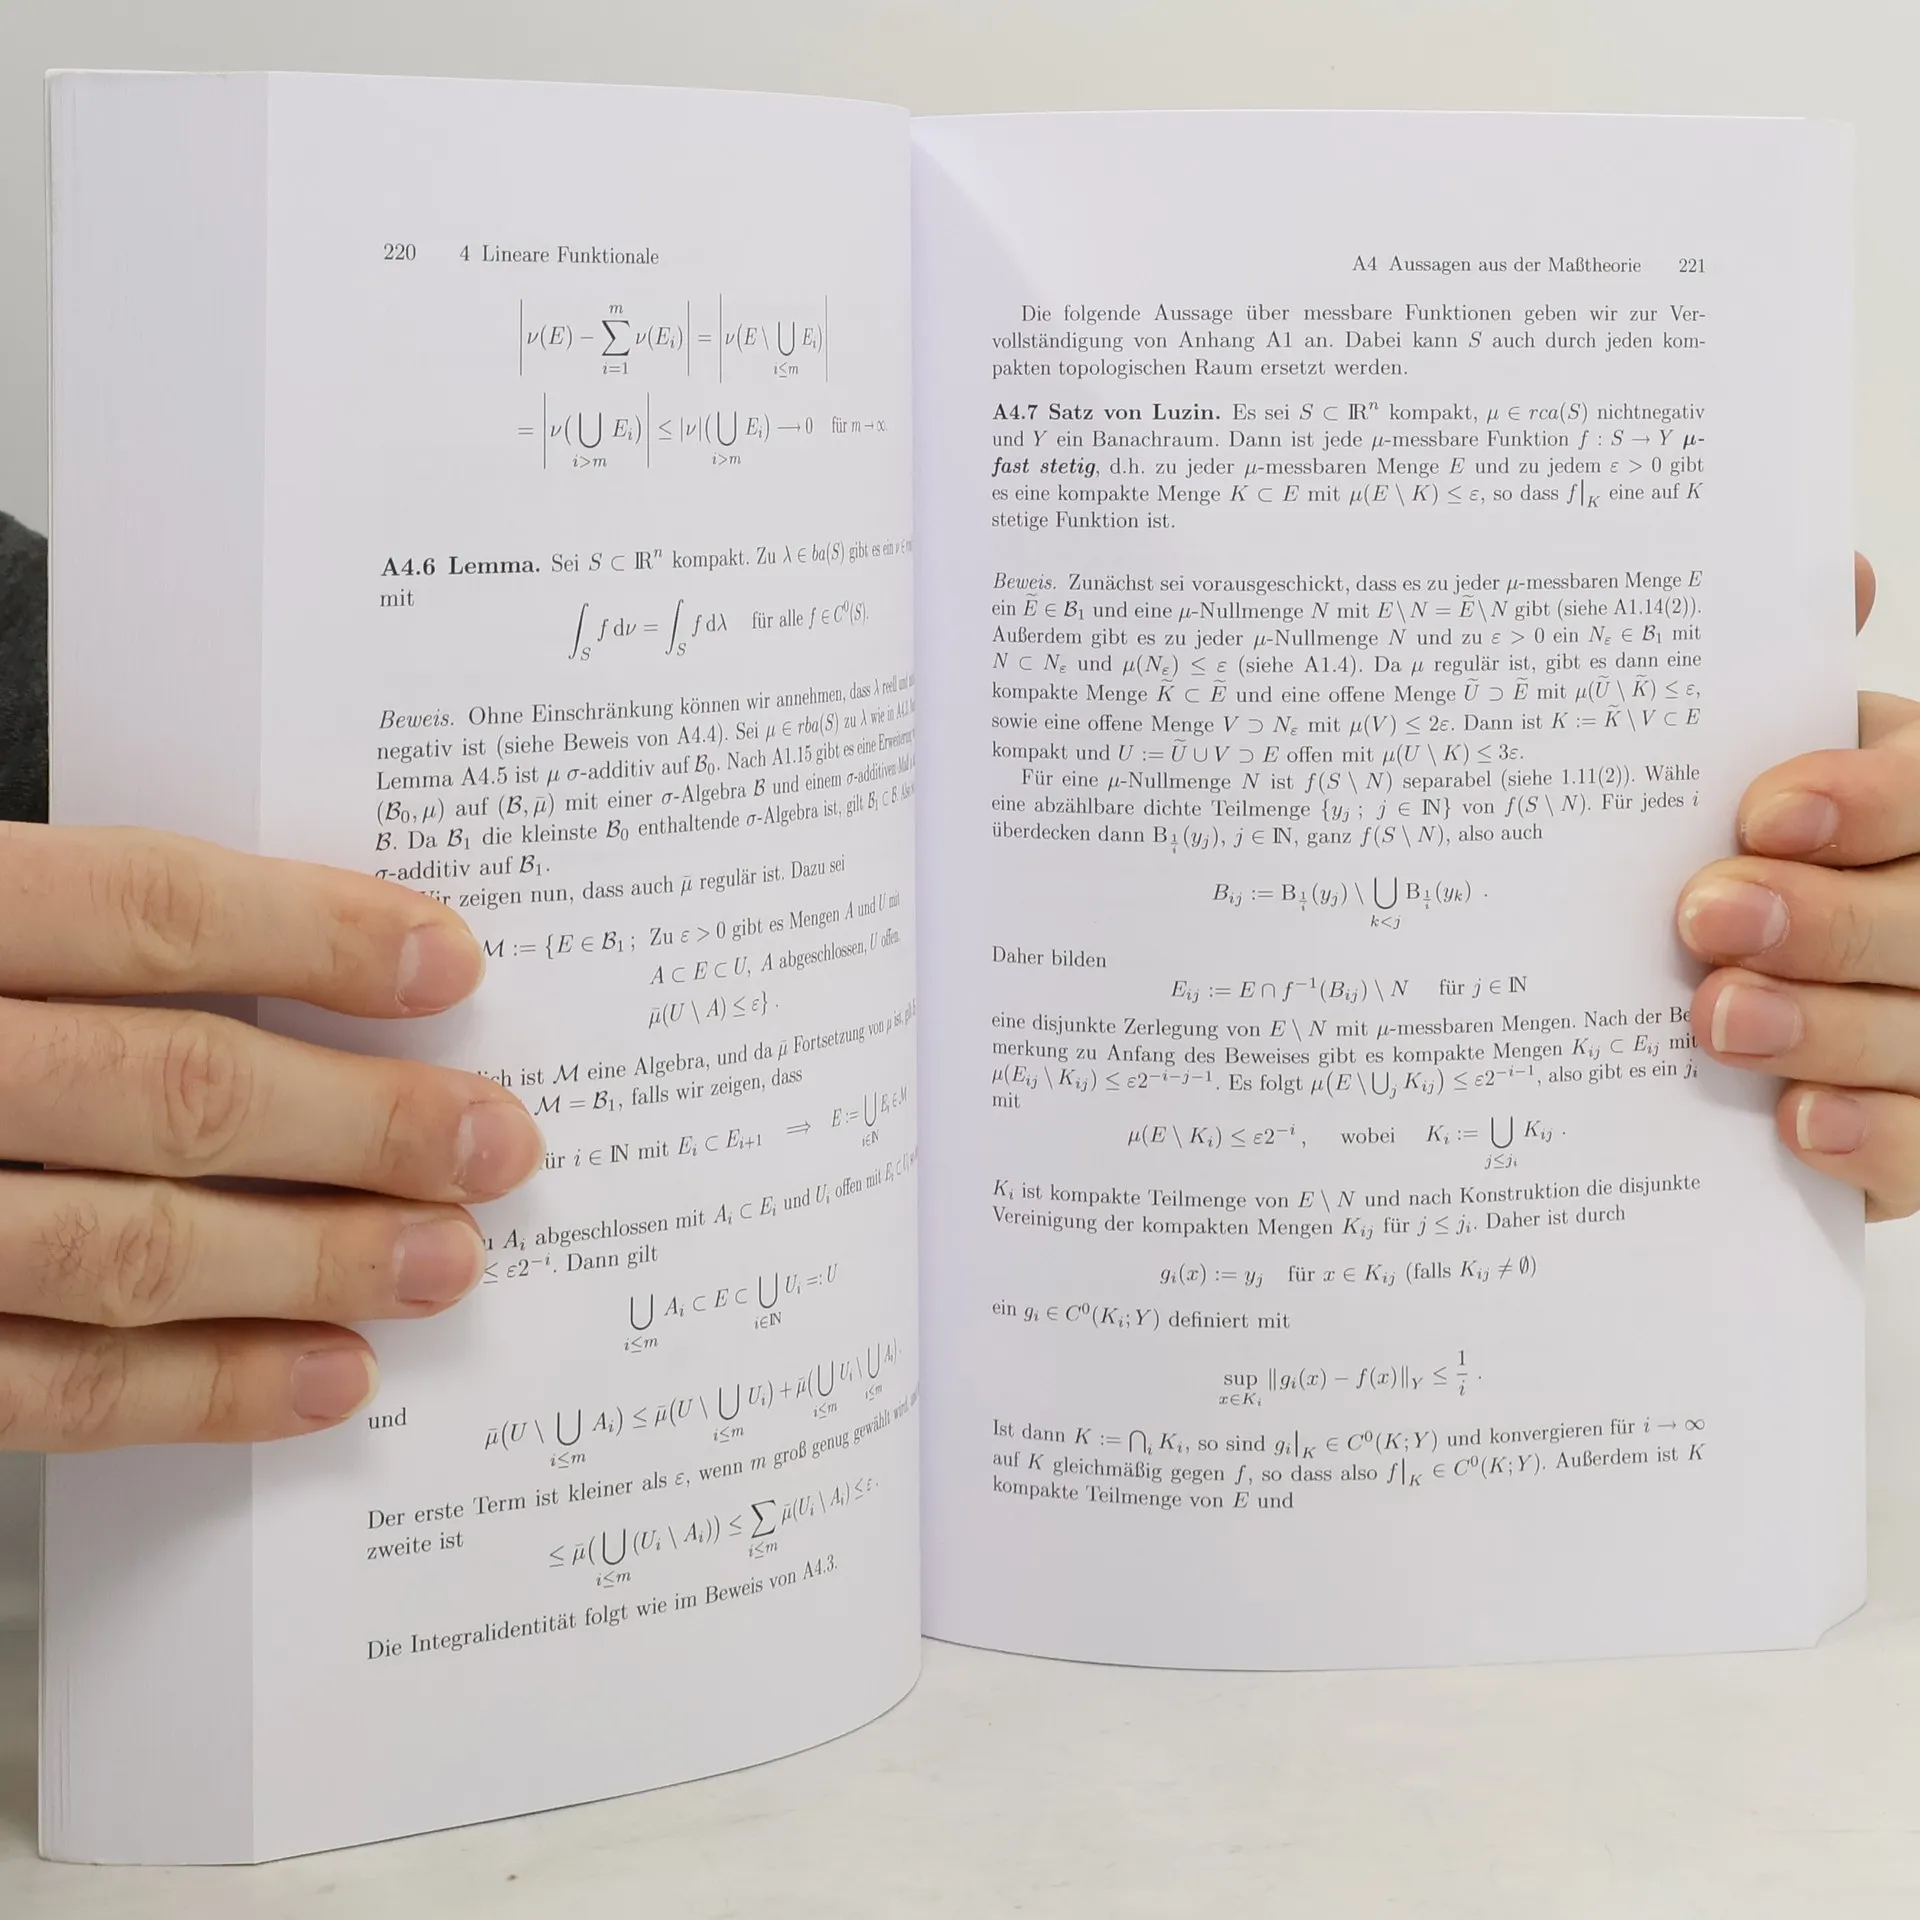 220 4 Lineare Funktionale
|ν(E) − ∑_{i=1}^{m} ν(E_i)| = |ν(E \ ⋃_{i≤m} E_i)|
= |ν(⋃_{i>m} E_i)| ≤ |ν|(⋃_{i>m} E_i) ⟶ 0 für m → ∞.
A4.6 Lemma. Sei S ⊂ ℝⁿ kompakt. Zu λ ∈ ba(S) gibt es ein ν ∈
mit
∫_S f dν = ∫_S f dλ für alle f ∈ C⁰(S).
Beweis. Ohne Einschränkung können wir annehmen, dass λ reell und
negativ ist (siehe Beweis von A4.4). Sei μ ∈ rba(S) zu λ wie in A4.3.
Lemma A4.5 ist μ σ-additiv auf ℬ₀. Nach A1.15 gibt es eine Erweiterung
(ℬ₀, μ) auf (ℬ, μ̄) mit einer σ-Algebra ℬ und einem σ-additiven Maß
ℬ. Da ℬ₁ die kleinste ℬ₀ enthaltende σ-Algebra ist, gilt ℬ₁ ⊂ ℬ.
σ-additiv auf ℬ₁.
ir zeigen nun, dass auch μ̄ regulär ist. Dazu sei
ℳ := {E ∈ ℬ₁ ; Zu ε > 0 gibt es Mengen A und U mit
A ⊂ E ⊂ U, A abgeschlossen, U offen,
μ̄(U \ A) ≤ ε} .
ich ist ℳ eine Algebra, und da μ̄ Fortsetzung von μ ist, gilt
ℳ = ℬ₁, falls wir zeigen, dass
ür i ∈ ℕ mit E_i ⊂ E_{i+1} ⟹ E := ⋃_{i∈ℕ} E_i ∈ ℳ
u A_i abgeschlossen mit A_i ⊂ E_i und U_i offen mit E_i ⊂ U_i
≤ ε2^{−i}. Dann gilt
⋃_{i≤m} A_i ⊂ E ⊂ ⋃_{i∈ℕ} U_i =: U
und
μ̄(U \ ⋃_{i≤m} A_i) ≤ μ̄(U \ ⋃_{i≤m} U_i) + μ̄(⋃_{i≤m} U_i \ ⋃_{i≤m} A_i).
Der erste Term ist kleiner als ε, wenn m groß genug gewählt wird,
zweite ist
≤ μ̄(⋃_{i≤m} (U_i \ A_i)) ≤ ∑_{i≤m} μ̄(U_i \ A_i) ≤ ε.
Die Integralidentität folgt wie im Beweis von A4.3.
A4 Aussagen aus der Maßtheorie 221
Die folgende Aussage über messbare Funktionen geben wir zur Ver-
vollständigung von Anhang A1 an. Dabei kann S auch durch jeden kom-
pakten topologischen Raum ersetzt werden.
A4.7 Satz von Luzin. Es sei S ⊂ ℝⁿ kompakt, μ ∈ rca(S) nichtnegativ
und Y ein Banachraum. Dann ist jede μ-messbare Funktion f : S → Y μ-
fast stetig, d.h. zu jeder μ-messbaren Menge E und zu jedem ε > 0 gibt
es eine kompakte Menge K ⊂ E mit μ(E \ K) ≤ ε, so dass f|_K eine auf K
stetige Funktion ist.
Beweis. Zunächst sei vorausgeschickt, dass es zu jeder μ-messbaren Menge E
ein Ẽ ∈ ℬ₁ und eine μ-Nullmenge N mit E \ N = Ẽ \ N gibt (siehe A1.14(2)).
Außerdem gibt es zu jeder μ-Nullmenge N und zu ε > 0 ein N_ε ∈ ℬ₁ mit
N ⊂ N_ε und μ(N_ε) ≤ ε (siehe A1.4). Da μ regulär ist, gibt es dann eine
kompakte Menge K̃ ⊂ Ẽ und eine offene Menge Ũ ⊃ Ẽ mit μ(Ũ \ K̃) ≤ ε,
sowie eine offene Menge V ⊃ N_ε mit μ(V) ≤ 2ε. Dann ist K := K̃ \ V ⊂ E
kompakt und U := Ũ ∪ V ⊃ E offen mit μ(U \ K) ≤ 3ε.
Für eine μ-Nullmenge N ist f(S \ N) separabel (siehe 1.11(2)). Wähle
eine abzählbare dichte Teilmenge {y_j ; j ∈ ℕ} von f(S \ N). Für jedes i
überdecken dann B_{1/i}(y_j), j ∈ ℕ, ganz f(S \ N), also auch
B_{ij} := B_{1/i}(y_j) \ ⋃_{k<j} B_{1/i}(y_k) .
Daher bilden
E_{ij} := E ∩ f^{−1}(B_{ij}) \ N für j ∈ ℕ
eine disjunkte Zerlegung von E \ N mit μ-messbaren Mengen. Nach der Be
merkung zu Anfang des Beweises gibt es kompakte Mengen K_{ij} ⊂ E_{ij} mit
μ(E_{ij} \ K_{ij}) ≤ ε2^{−i−j−1}. Es folgt μ(E \ ⋃_j K_{ij}) ≤ ε2^{−i−1}, also gibt es ein j_i
mit
μ(E \ K_i) ≤ ε2^{−i} , wobei K_i := ⋃_{j≤j_i} K_{ij} .
K_i ist kompakte Teilmenge von E \ N und nach Konstruktion die disjunkte
Vereinigung der kompakten Mengen K_{ij} für j ≤ j_i. Daher ist durch
g_i(x) := y_j für x ∈ K_{ij} (falls K_{ij} ≠ ∅)
ein g_i ∈ C⁰(K_i; Y) definiert mit
sup_{x∈K_i} ‖g_i(x) − f(x)‖_Y ≤ 1/i .
Ist dann K := ⋂_i K_i, so sind g_i|_K ∈ C⁰(K; Y) und konvergieren für i → ∞
auf K gleichmäßig gegen f, so dass also f|_K ∈ C⁰(K; Y). Außerdem ist K
kompakte Teilmenge von E und